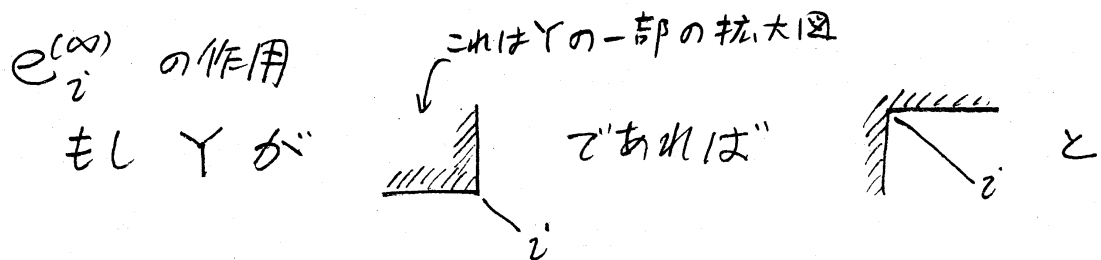 e_i^{(∞)} の作用
これはYの一部の拡大図
もし Y が であれば と
i i